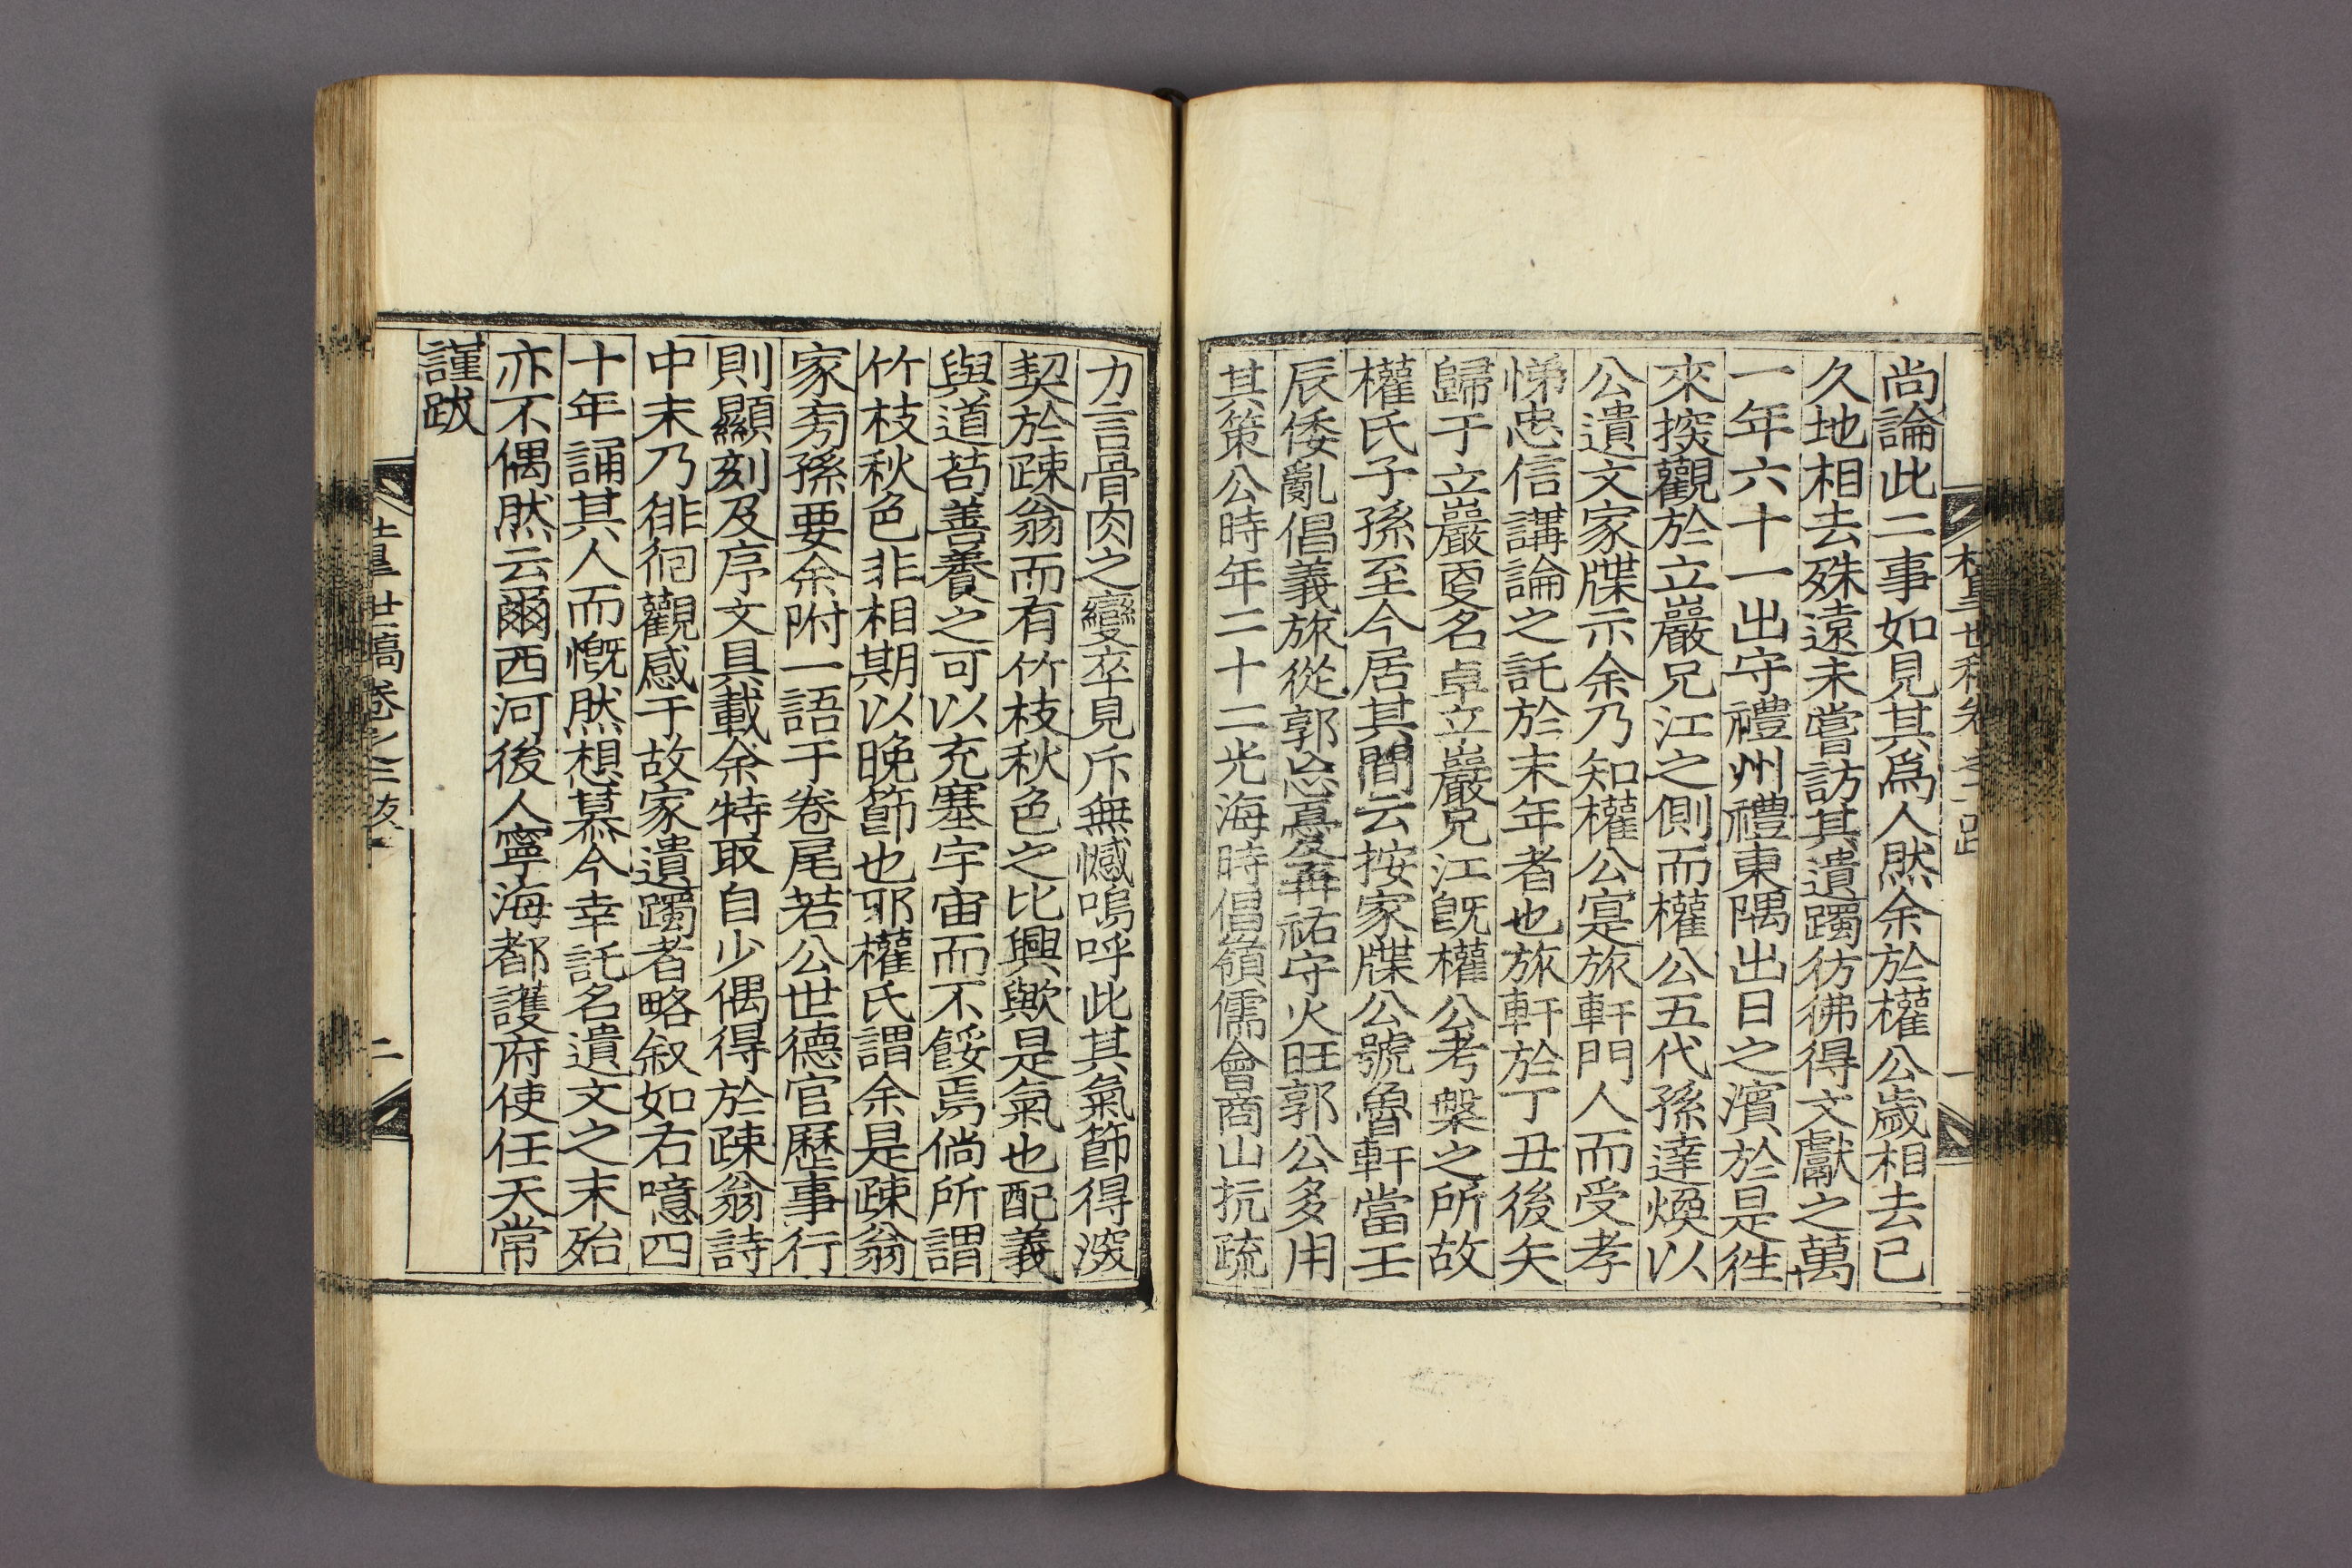 尚論此二事如見其爲人然余於權公歲相去已
久地相去殊遠未嘗訪其遺躅彷彿得文獻之萬
一年六十一出守禮州禮東隅出日之濱於是徃
來揬觀於立巖兄江之側而權公五代孫達煥以
公遺文家牒示余乃知權公寔旅軒門人而受孝
悌忠信講論之託於末年者也旅軒於丁丑後矢
歸于立巖夏名卓立巖兄江旣權公考槃之所故
權氏子孫至今居其間云按家牒公號魯軒當壬
辰倭亂倡義旅從郭忘憂再祐守火旺郭公多用
其策公時年二十二光海時倡嶺儒會商山抗疏
力言骨肉之變卒見斥無憾嗚呼此其氣節得深
契於踈翁而有竹枝秋色之比興歟是氣也配義
與道苟善養之可以充塞宇宙而不餒焉倘所謂
竹枝秋色非相期以晚節也耶權氏謂余是踈翁
家旁孫要余附一語于卷尾若公世德官歷事行
則顯刻及序文具載余特取自少偶得於踈翁詩
中末乃徘徊觀感于故家遺躅者略叙如右噫四
十年誦其人而慨然想慕今幸託名遺文之末殆
亦不偶然云爾西河後人寧海都護府使任天常
謹跋
世稿卷之二跋
二